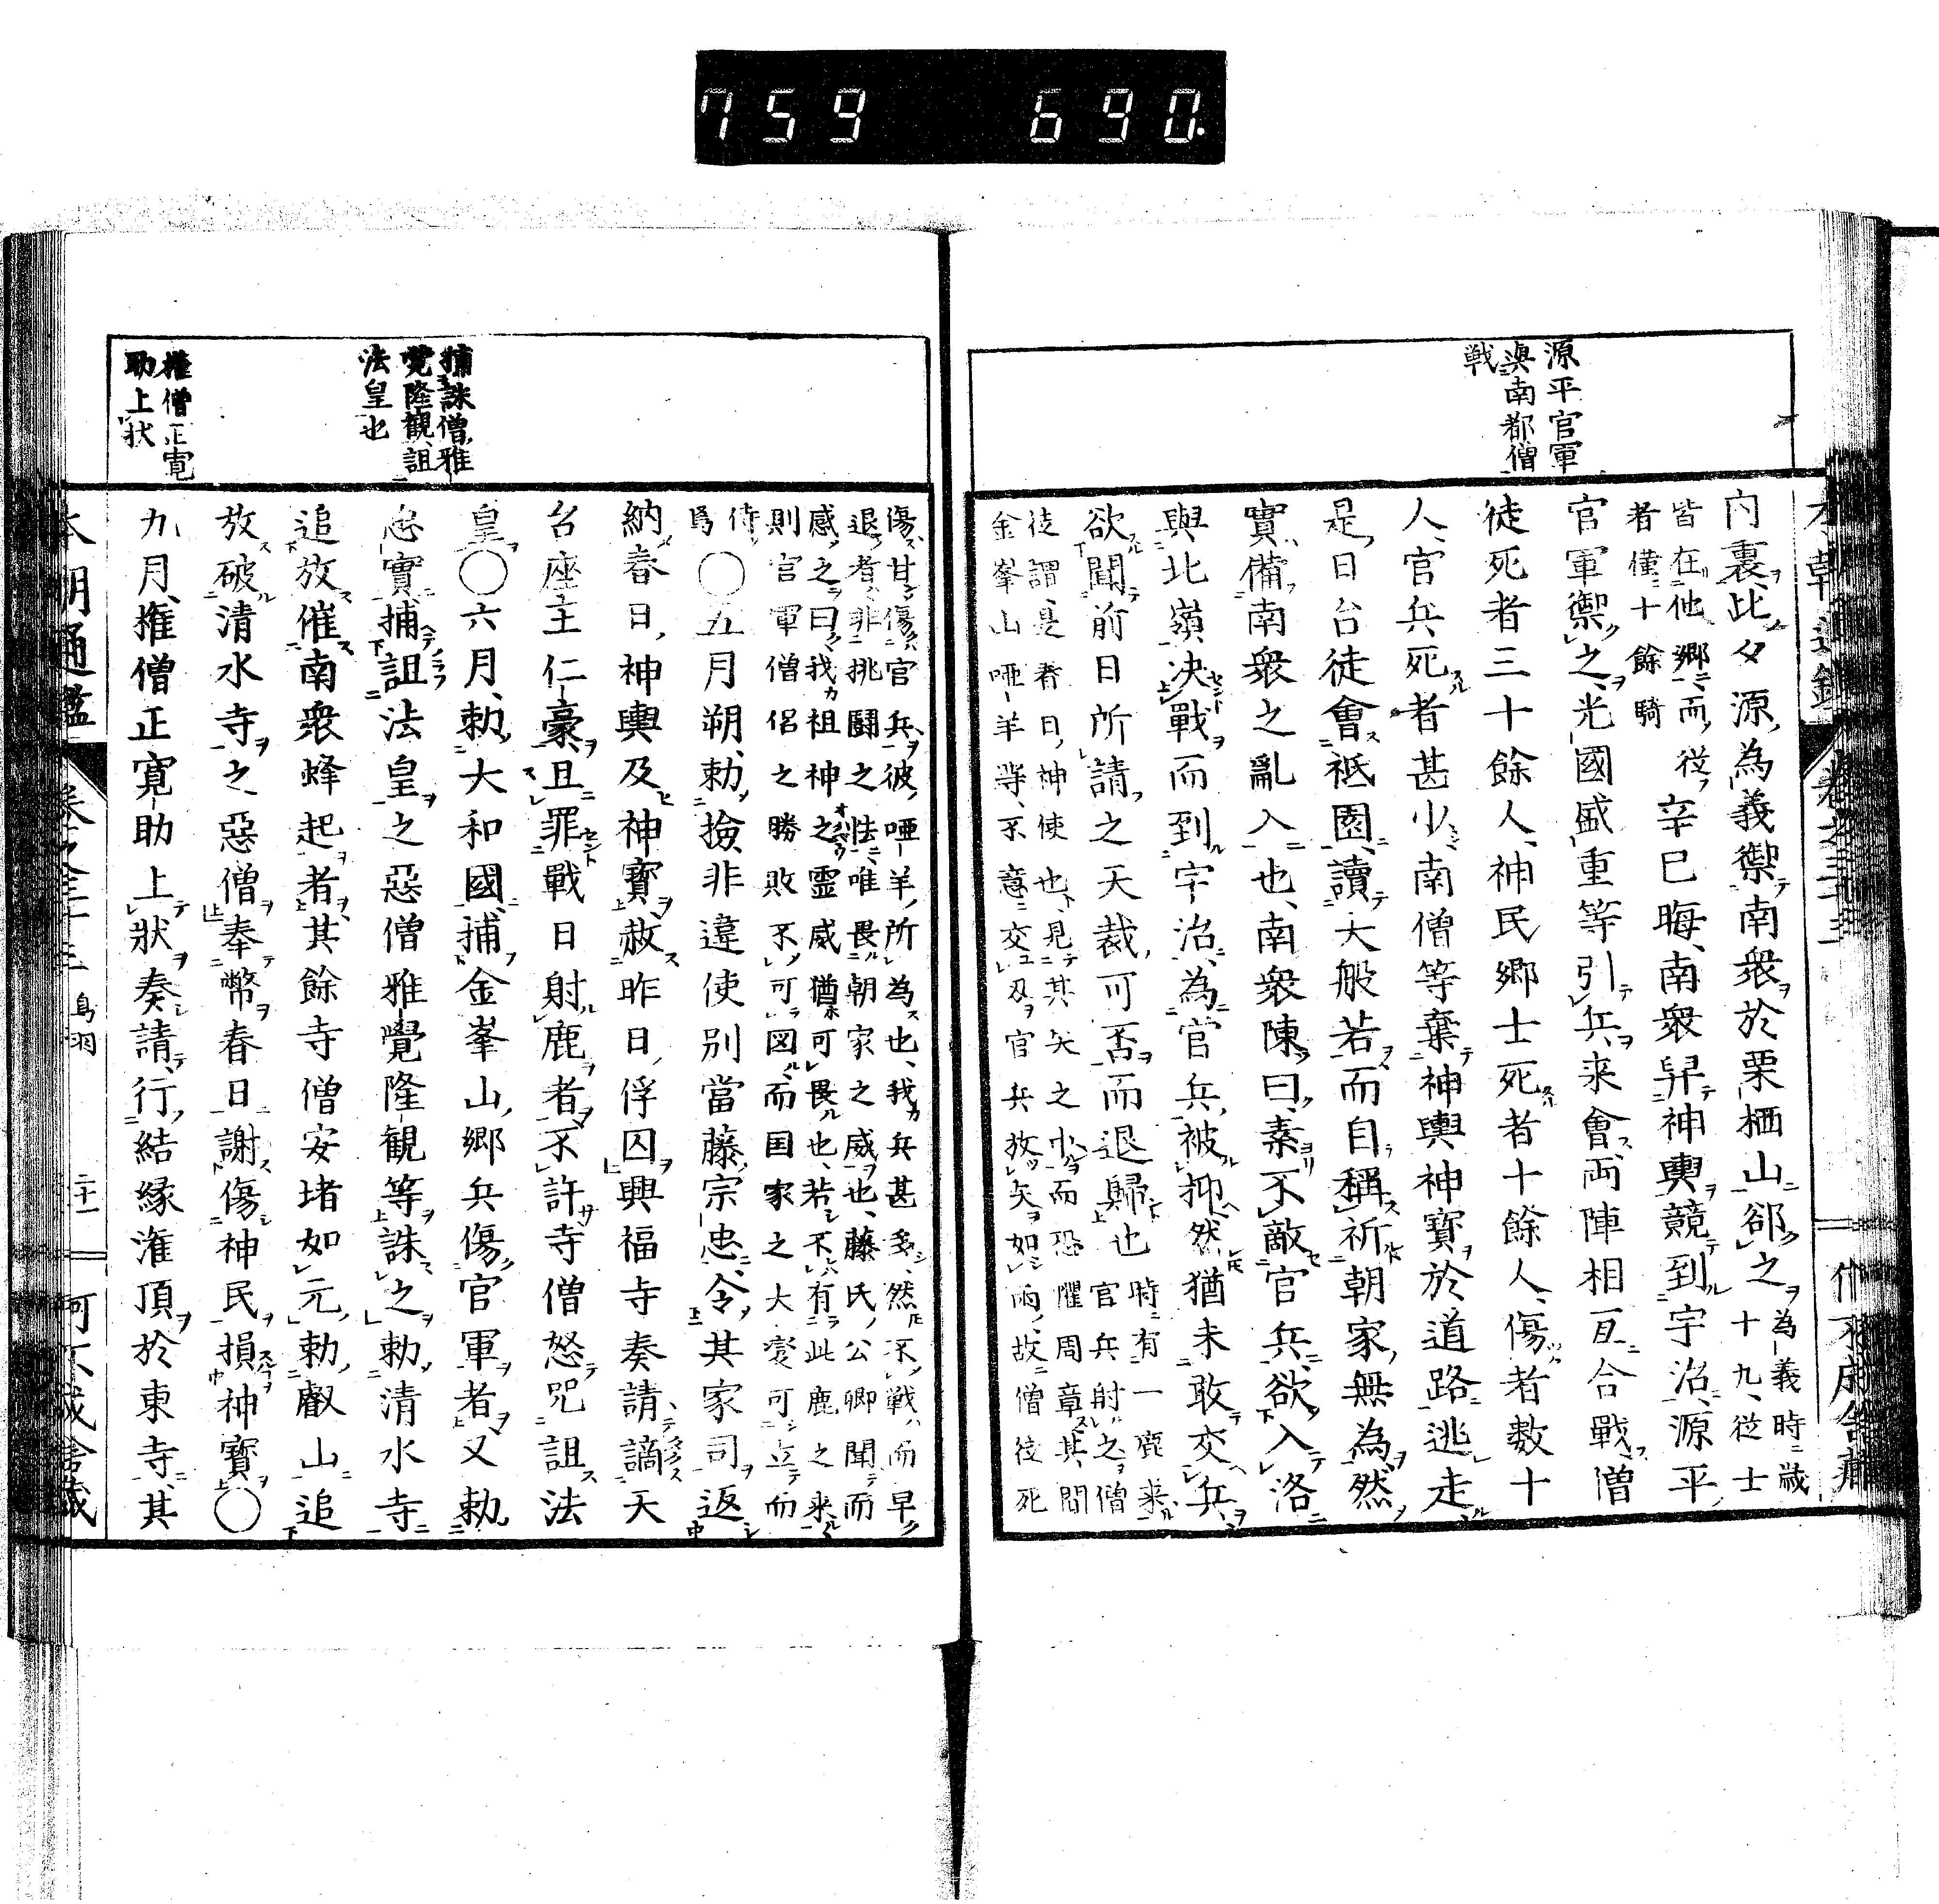 759 690.
源平官軍
與南都僧
戦
内裏、此夕源為義禦南衆於栗栖山郤之
為義時歳
十九、従士
皆在他郷而従
者僅十餘騎
辛巳晦、南衆舁神輿競到宇治、源平
官軍禦之、光國盛重等引兵来會、両陣相亙合戰、僧
徒死者三十餘人、神民郷士死者十餘人、傷者数十
人、官兵死者甚少、南僧等棄神輿神寶於道路逃走
是日台徒會祇園、讀大般若而自稱祈朝家無為、然
實備南衆之亂入也、南衆陳曰、素不敵官兵、欲入洛
與北嶺決戰而到宇治、為官兵被抑然猶未敢交兵
欲聞前日所請之天裁可否而退歸也
時有一鹿来
官兵射之僧
徒謂是春日神使也、見其矢之中而恐懼周章其間
金峯山唖羊等、不意交刄官兵放矢如雨、故僧徒死
傷甘傷官兵、彼唖羊所為也、我兵甚多、然不戰而早
退者非挑闘之怯、唯畏朝家之威也、藤氏公卿聞而
感之曰我祖神之靈威猶可畏也、若不有此鹿之来
則官軍僧侶之勝敗不可図、而国家之大変可立而
待
焉
〇五月朔、勅撿非違使別當藤宗忠、令其家司返
納春日神輿及神寶、赦昨日俘囚興福寺奏請、謫天
台座主仁豪、且罪戰日射鹿者不許寺僧怒咒詛法
皇〇六月、勅大和國捕金峯山郷兵傷官軍者又勅
忠實、捕詛法皇之惡僧雅覺隆観等誅之勅清水寺
追放催南衆蜂起者、其餘寺僧安堵如元、勅叡山追
放破清水寺之惡僧奉幣春日謝傷神民損神寶〇
九月、権僧正寛助上狀奏請、行結縁潅頂於東寺、其
捕誅僧雅
覚隆観詛
法皇也
權僧正寛
助上状
本朝通鑑
鳥羽